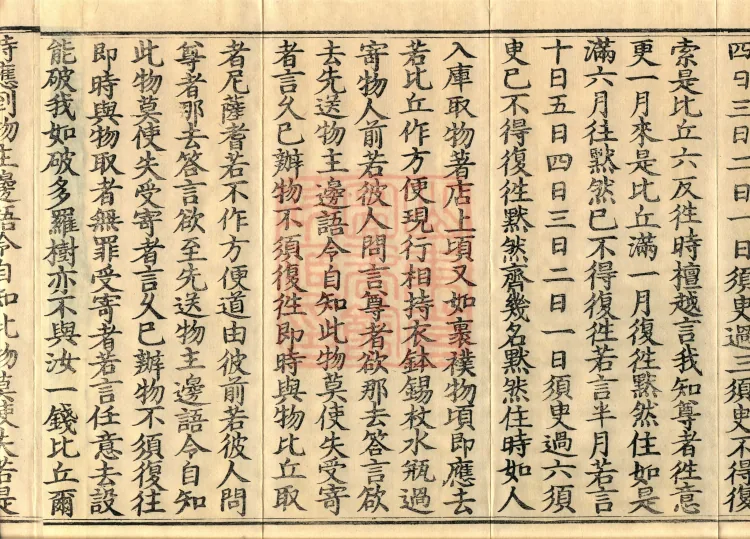 四日三日二日一日須臾過三須臾不得復
索是比丘六反往時檀越言我知尊者往意
更一月來是比丘滿一月復往默然住如是
滿六月往默然已不得復往若言半月若言
十日五日四日三日二日一日須臾過六須
臾已不得復往默然齊幾名默然住時如人
入庫取物著店上項又如裹襆物項即應去
若比丘作方便現行相持衣鉢錫杖水瓶過
寄物人前若彼人問言尊者欲那去答言欲
去先送物主邊語令自知此物莫使失受寄
者言久已辦物不須復往即時與物比丘取
者尼薩耆若不作方便道由彼前若彼人問
尊者那去答言欲至先送物主邊語令自知
此物莫使失受寄者言久已辦物不須復往
即時與物取者無罪受寄者若言任意去設
能破我如破多羅樹亦不與汝一錢比丘爾
時應到物主邊語令自知此物莫使失若是